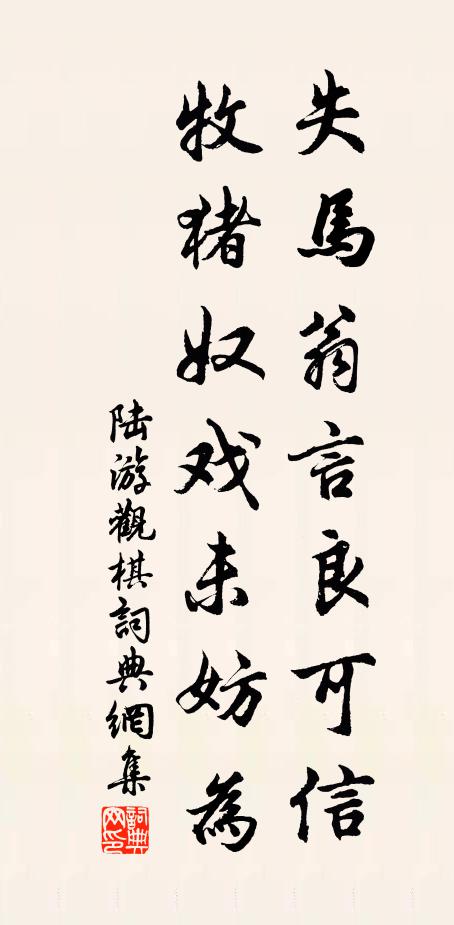 失馬翁言良可信
牧猪奴戏未妨為
陆游觀棋詞典網集
詞典网印